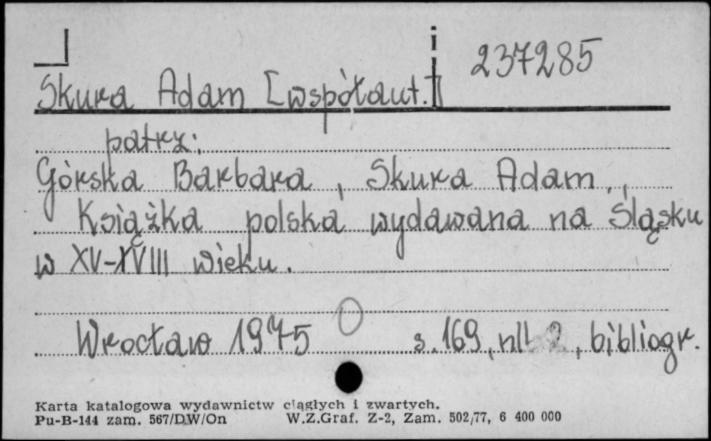 237285
Skura Adam [współaut.]
patrz:
Górska Barbara, Skura Adam.,
Książka polska wydawana na Śląsku
w XV-XVIII wieku.
Wrocław 1975 s. 169, nlb 2, bibliogr.
Karta katalogowa wydawnictw ciągłych i zwartych.
Pu-B-144 zam. 567/DW/On W.Z.Graf. Z-2, Zam. 502/77, 6 400 000